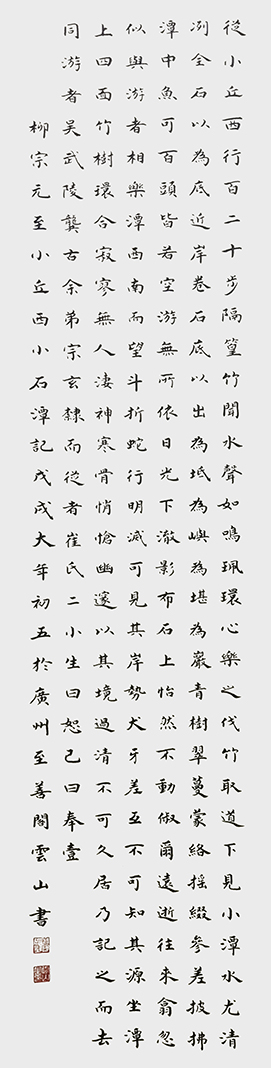 從小丘西行百二十步隔篁竹聞水聲如鳴珮環心樂之伐竹取道下見小潭水尤清
冽全石以為底近岸卷石底以出為坻為嶼為堪為巖青樹翠蔓蒙絡搖綴參差披拂
潭中魚可百頭皆若空游無所依日光下澈影布石上怡然不動俶爾遠逝往來翕忽
似與游者相樂潭西南而望斗折蛇行明滅可見其岸勢犬牙差互不可知其源坐潭
上四面竹樹環合寂寥無人淒神寒骨悄愴幽邃以其境過清不可久居乃記之而去
同游者吳武陵龔古余弟宗玄隸而從者崔氏二小生曰恕己曰奉壹
柳宗元至小丘西小石潭記戊戌大年初五於廣州至善閣雲山書